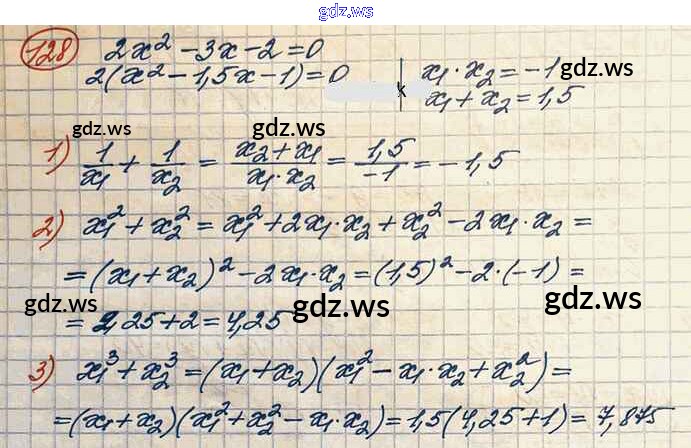 gdz.ws
128 2x² - 3x - 2 = 0
2(x² - 1,5x - 1) = 0
x₁·x₂ = -1 gdz.ws
x
x₁ + x₂ = 1,5
gdz.ws gdz.ws
1) 1/x₁ + 1/x₂ = (x₂ + x₁)/(x₁·x₂) = 1,5/-1 = -1,5
2) x₁² + x₂² = x₁² + 2x₁·x₂ + x₂² - 2x₁·x₂ =
= (x₁ + x₂)² - 2x₁·x₂ = (1,5)² - 2·(-1) =
gdz.ws gdz.ws gdz.ws
= 2,25 + 2 = 4,25
3) x₁³ + x₂³ = (x₁ + x₂)(x₁² - x₁·x₂ + x₂²) =
gdz.ws gdz.ws gdz.ws
= (x₁ + x₂)(x₁² + x₂² - x₁·x₂) = 1,5(4,25 + 1) = 7,875